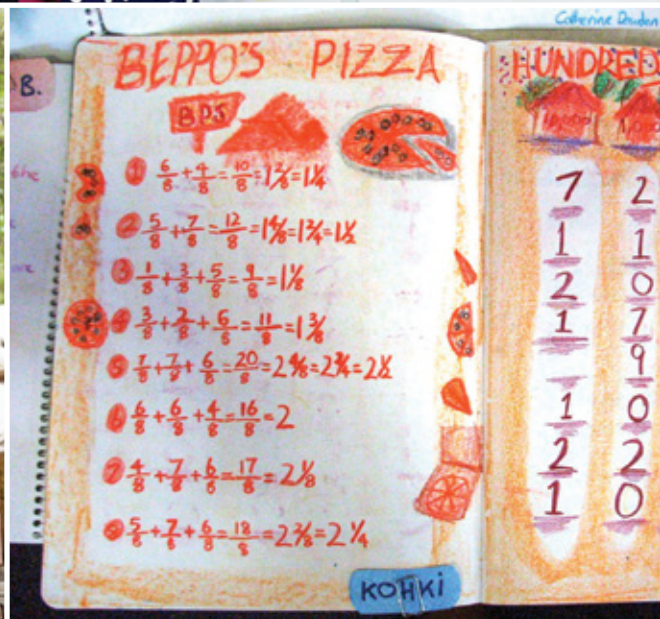 Catherine Dowdon
B.
the
BEPPO'S PIZZA
BPS
1 6/8 + 4/8 = 10/8 = 1 2/8 = 1 1/4
2 5/8 + 7/8 = 12/8 = 1 4/8 = 1 2/4 = 1 1/2
3 1/8 + 3/8 + 5/8 = 9/8 = 1 1/8
4 3/8 + 2/8 + 6/8 = 11/8 = 1 3/8
5 7/8 + 7/8 + 6/8 = 20/8 = 2 4/8 = 2 2/4 = 2 1/2
6 6/8 + 6/8 + 4/8 = 16/8 = 2
7 4/8 + 7/8 + 6/8 = 17/8 = 2 1/8
8 5/8 + 7/8 + 6/8 = 18/8 = 2 2/8 = 2 1/4
KOHKi
HUNDRED
10,000 1,000
7 2
1 1
2 0
1 7
9
1 0
2 2
1 0